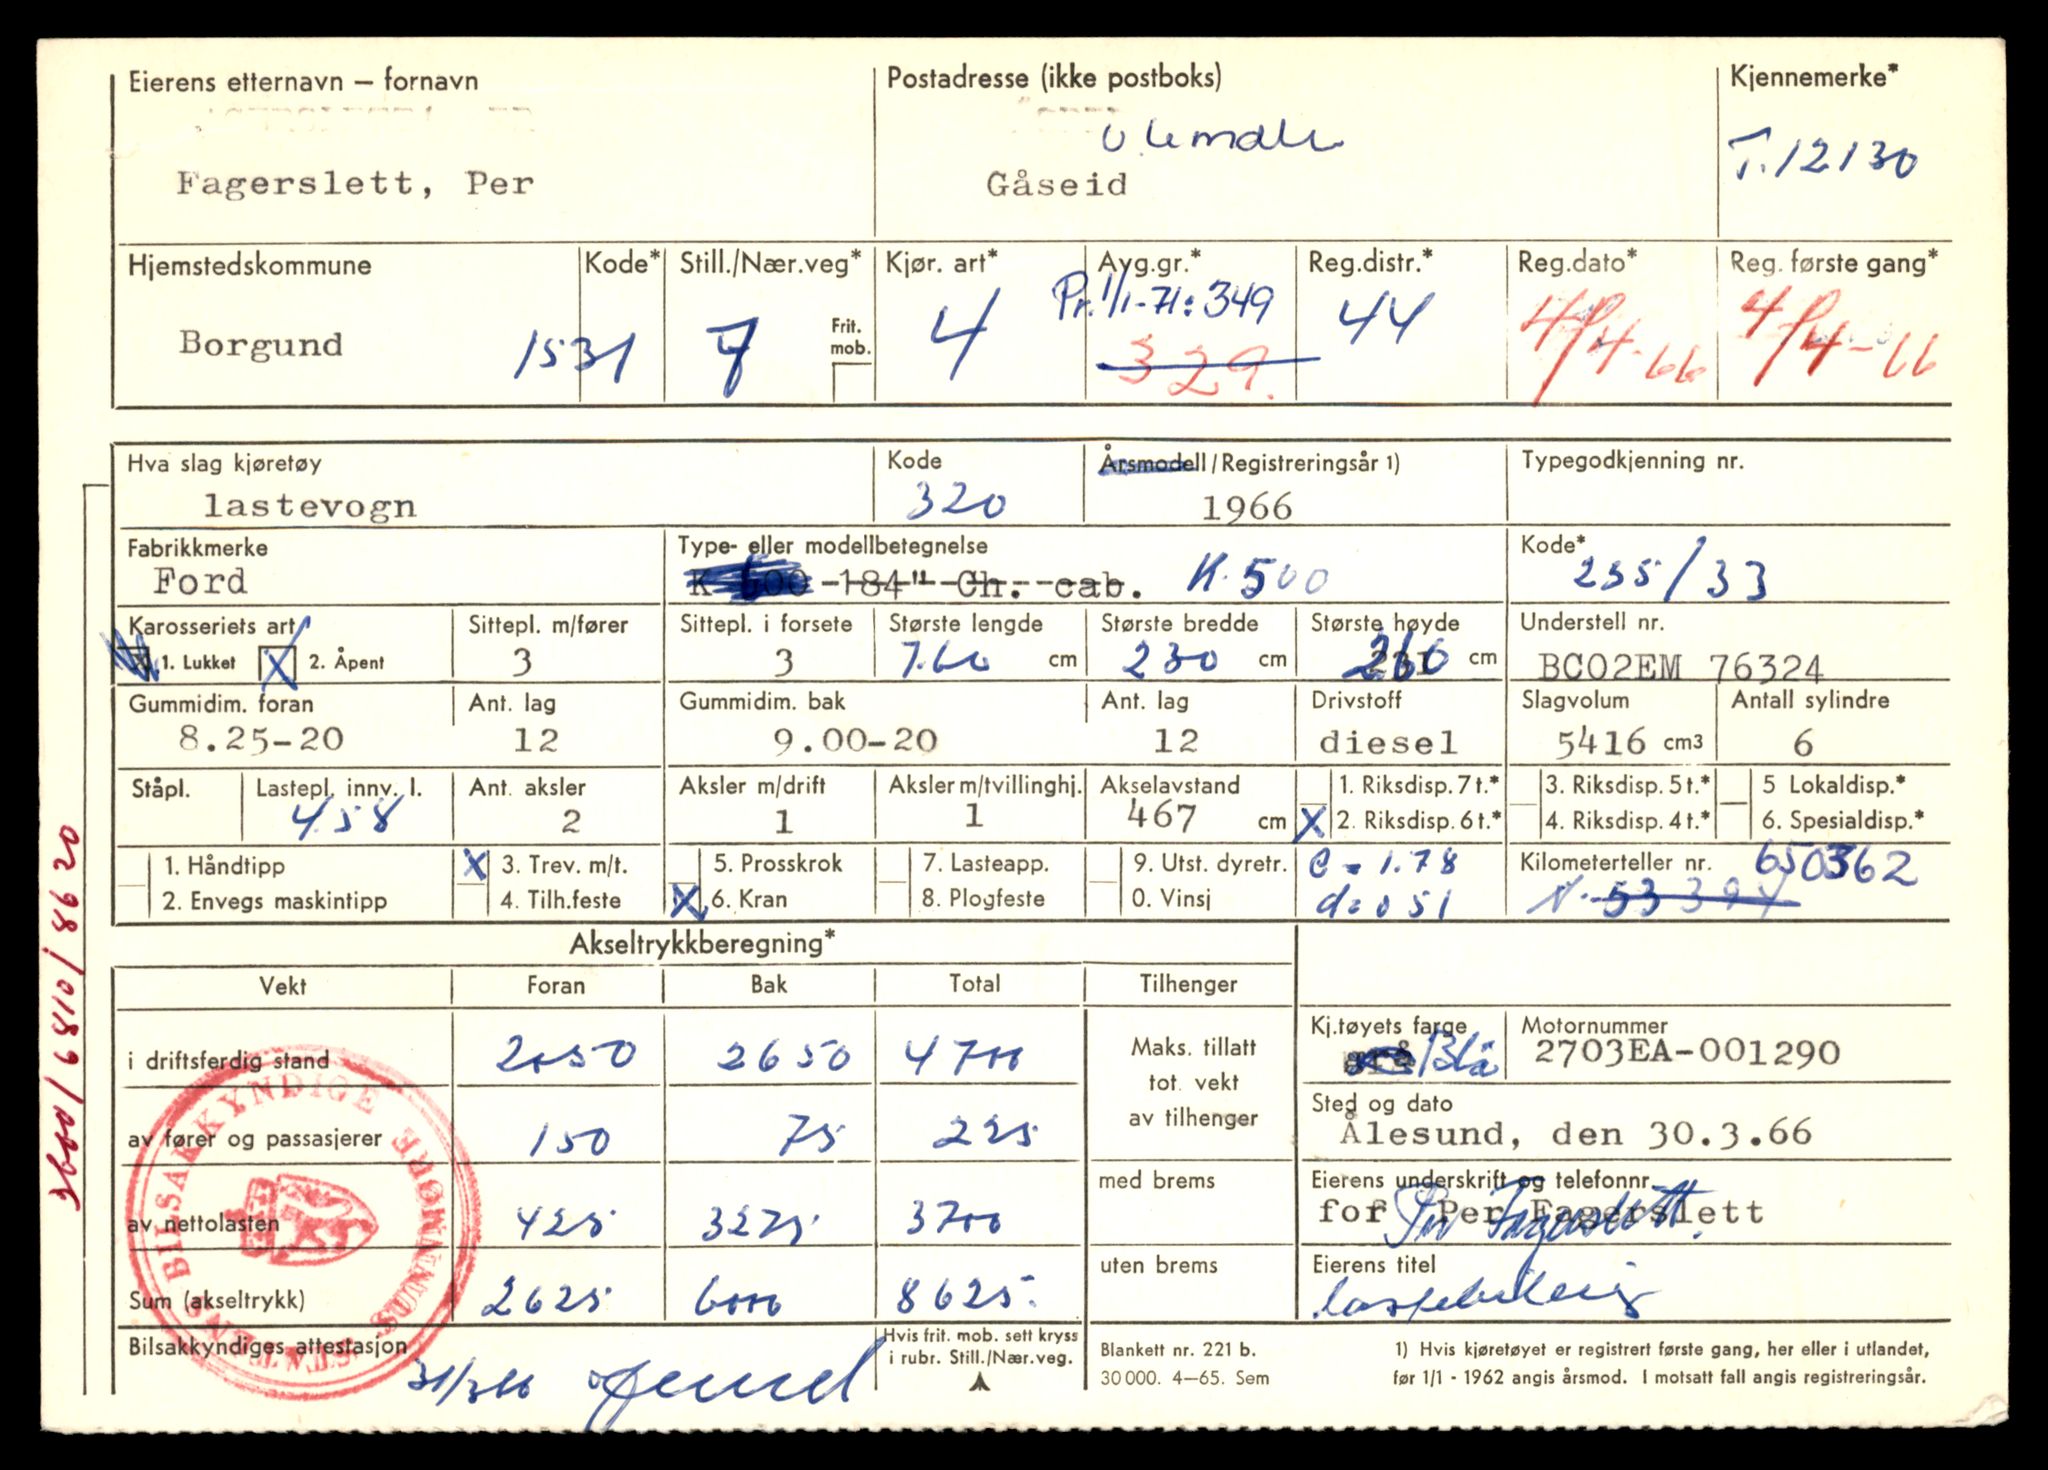 Eierens etternavn – fornavn
Postadresse (ikke postboks)
Kjennemerke*
Fagerslett, Per
Gåseid
T.12130
Hjemstedskommune
Kode*
Still./Nær.veg*
Kjør. art*
Avg.gr.*
Reg.distr.*
Reg.dato*
Reg. første gang*
Borgund
1531
7
Frit. mob.
4
Pr. 1/1-71: 349
329.
44
4/4-66
4/4-66
Hva slag kjøretøy
Kode
Årsmodell/Registreringsår 1)
Typegodkjenning nr.
lastevogn
320
1966
Fabrikkmerke
Type- eller modellbetegnelse
Kode*
Ford
K 600 -184" Ch. cab.
K.500
235/33
Karosseriets art
Sittepl. m/fører
Sittepl. i forsete
Største lengde
Største bredde
Største høyde
Understell nr.
X 1. Lukket X 2. Åpent
3
3
7.60 cm
230 cm
260 cm
BC02EM 76324
Gummidim. foran
Ant. lag
Gummidim. bak
Ant. lag
Drivstoff
Slagvolum
Antall sylindre
8.25-20
12
9.00-20
12
diesel
5416 cm3
6
Ståpl.
Lastepl. innv. l.
Ant. aksler
Aksler m/drift
Aksler m/tvillinghj.
Akselavstand
1. Riksdisp. 7 t.*
3. Riksdisp. 5 t.*
5 Lokaldisp.*
4.58
2
1
1
467 cm
X 2. Riksdisp. 6 t.*
4. Riksdisp. 4 t.*
6. Spesialdisp.*
1. Håndtipp
X 3. Trev. m/t.
5. Prosskrok
7. Lasteapp.
9. Utst. dyretr.
c = 1.78
Kilometerteller nr. 650362
2. Envegs maskintipp
4. Tilh.feste
X 6. Kran
8. Plogfeste
0. Vinsj
d=051
Akseltrykkberegning*
Vekt
Foran
Bak
Total
Tilhenger
i driftsferdig stand
2050
2650
4700
Maks. tillatt
tot. vekt
av tilhenger
Kj.tøyets farge
Blå
Motornummer
2703EA-001290
av fører og passasjerer
150
75
225
Sted og dato
Ålesund, den 30.3.66
av nettolasten
425
3275
3700
med brems
Eierens underskrift og telefonnr.
for Per Fagerslett
Per Fagerslett
Sum (akseltrykk)
2625
6000
8625
uten brems
Eierens titel
lastebileig
Bilsakkyndiges attestasjon
31/3 66
Hvis frit. mob. sett kryss
i rubr. Still./Nær.veg.
Blankett nr. 221 b.
30 000. 4–65. Sem
1) Hvis kjøretøyet er registrert første gang, her eller i utlandet,
før 1/1 - 1962 angis årsmod. I motsatt fall angis registreringsår.
STATENS BILSAKKYNDIGE SUNNMØRE
3600/6810/8620